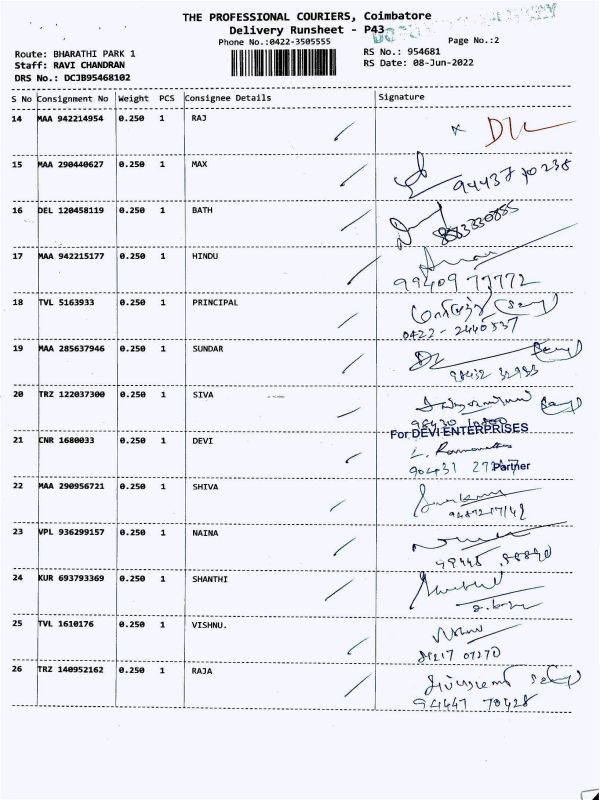 THE PROFESSIONAL COURIERS, Coimbatore
Delivery Runsheet - P43
Phone No.:0422-3505555
Page No.:2
Route: BHARATHI PARK 1
RS No.: 954681
Staff: RAVI CHANDRAN
RS Date: 08-Jun-2022
DRS No.: DCJB95468102
S No Consignment No Weight PCS Consignee Details Signature
14 MAA 942214954 0.250 1 RAJ
15 MAA 290440627 0.250 1 MAX
16 DEL 120458119 0.250 1 BATH
17 MAA 942215177 0.250 1 HINDU
99409 77772
18 TVL 5163933 0.250 1 PRINCIPAL
0422-2440537
19 MAA 285637946 0.250 1 SUNDAR
20 TRZ 122037300 0.250 1 SIVA
For DEVI ENTERPRISES
21 CNR 1680033 0.250 1 DEVI
Partner
22 MAA 290956721 0.250 1 SHIVA
23 VPL 936299157 0.250 1 NAINA
24 KUR 693793369 0.250 1 SHANTHI
25 TVL 1610176 0.250 1 VISHNU.
26 TRZ 140952162 0.250 1 RAJA
94447 70428